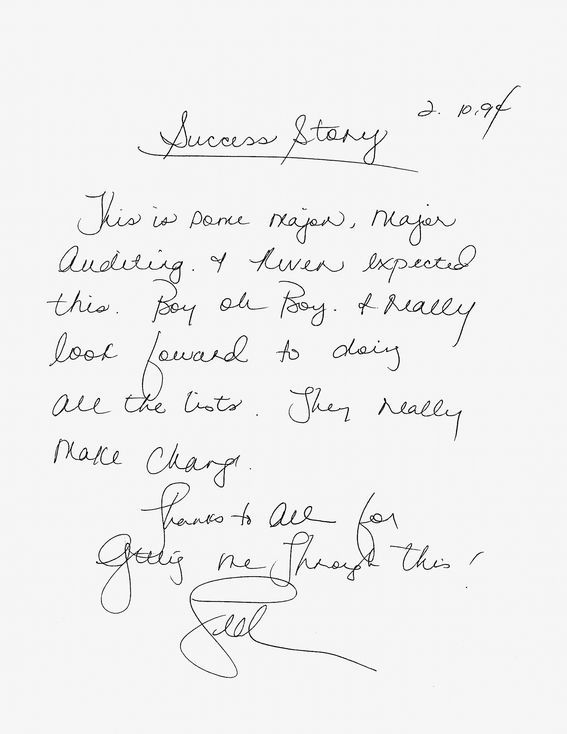 2.10.94
Success Story
This is some major, Major
Auditing. I Never expected
this. Boy oh Boy. I Really
look foward to doing
all the lists. They really
Make Change.
Thanks to all for
getting me through this!